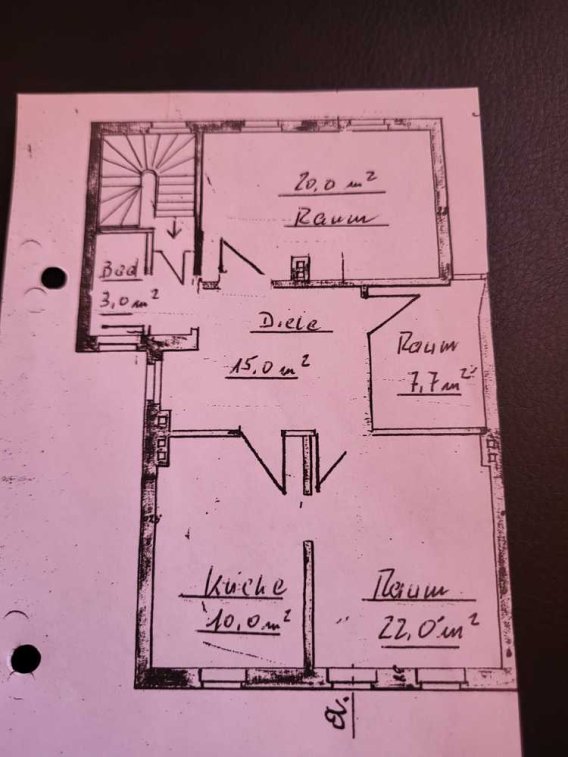 20,0 m²
Raum
Bad
3,0 m²
Diele
15,0 m²
Raum
7,7 m²
Küche
10,0 m²
Raum
22,0 m²
a.